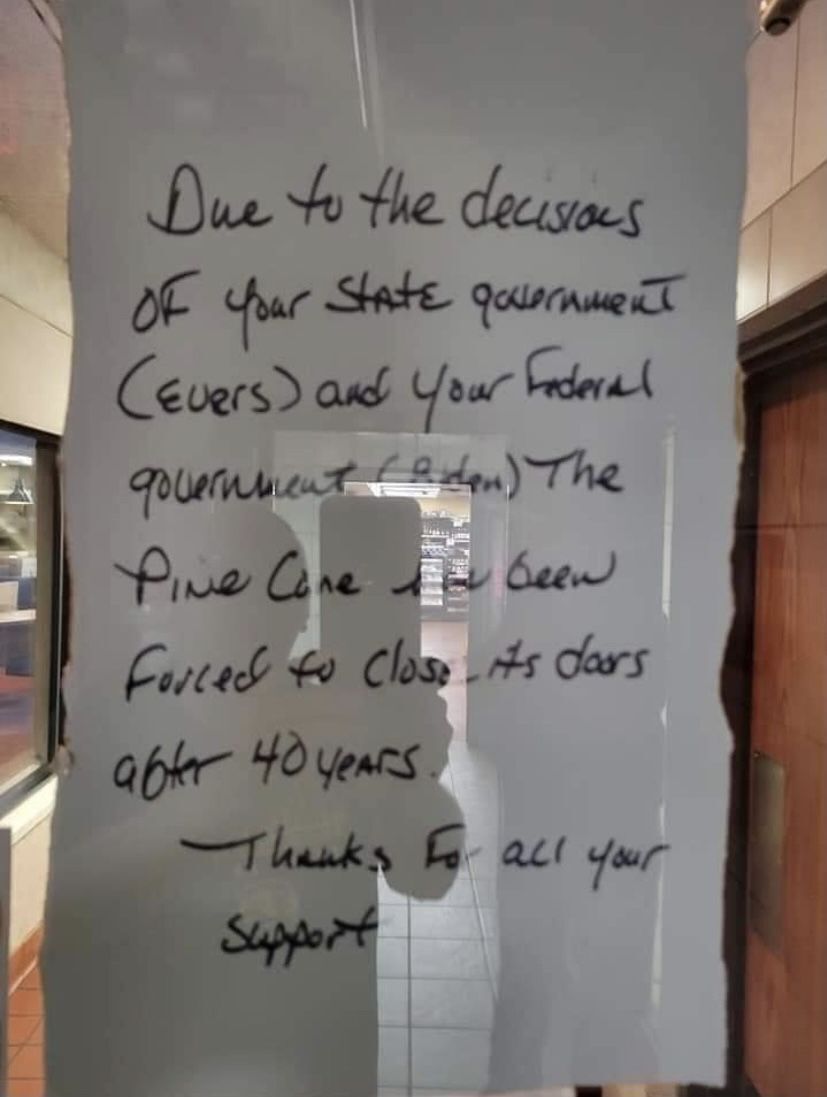 Due to the decisions
OF your STATE government
(Evers) and your Federal
government (Biden) The
Pine Cone has been
Forced to close its doors
after 40 years.
Thanks For all your
support